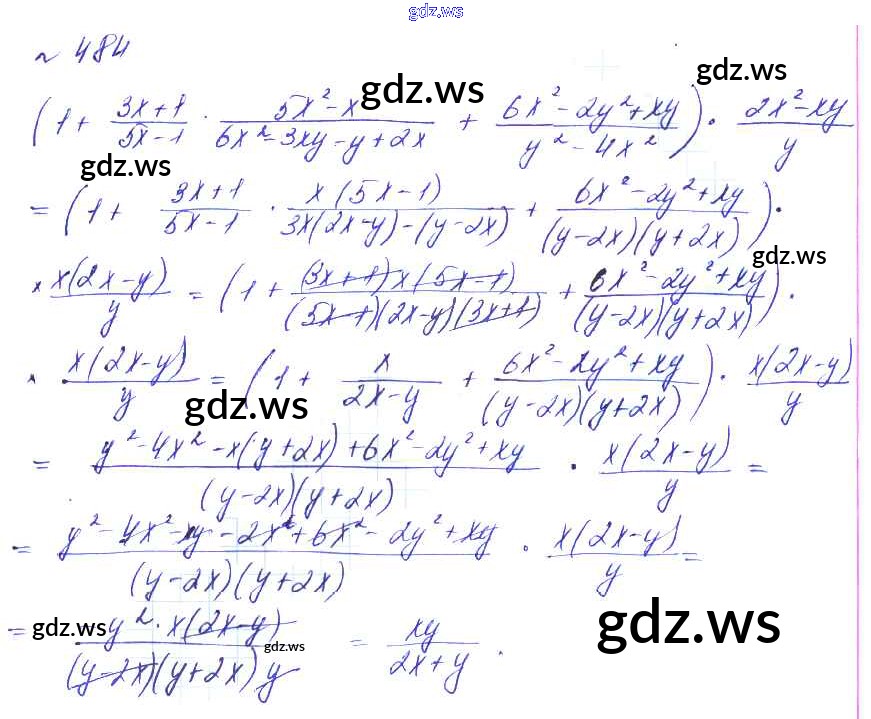 gdz.ws
~ 484
gdz.ws
gdz.ws
(1 + (3x+1)/(5x-1) · (5x²-x)/(6x²-3xy-y+2x) + (6x²-2y²+xy)/(y²-4x²)) · (2x²-xy)/y
gdz.ws
= (1 + (3x+1)/(5x-1) · x(5x-1)/(3x(2x-y)-(y-2x)) + (6x²-2y²+xy)/((y-2x)(y+2x))) ·
gdz.ws
× x(2x-y)/y = (1 + (3x+1)x(5x-1)/((5x-1)(2x-y)(3x+1)) + (6x²-2y²+xy)/((y-2x)(y+2x))) ·
× x(2x-y)/y = (1 + x/(2x-y) + (6x²-2y²+xy)/((y-2x)(y+2x))) · x(2x-y)/y
gdz.ws
= (y²-4x²-x(y+2x)+6x²-2y²+xy)/((y-2x)(y+2x)) · x(2x-y)/y =
= (y²-4x²-xy-2x²+6x²-2y²+xy)/((y-2x)(y+2x)) · x(2x-y)/y =
= -y²·x(2x-y)/((y-2x)(y+2x)y) = xy/(2x+y).
gdz.ws
gdz.ws
gdz.ws